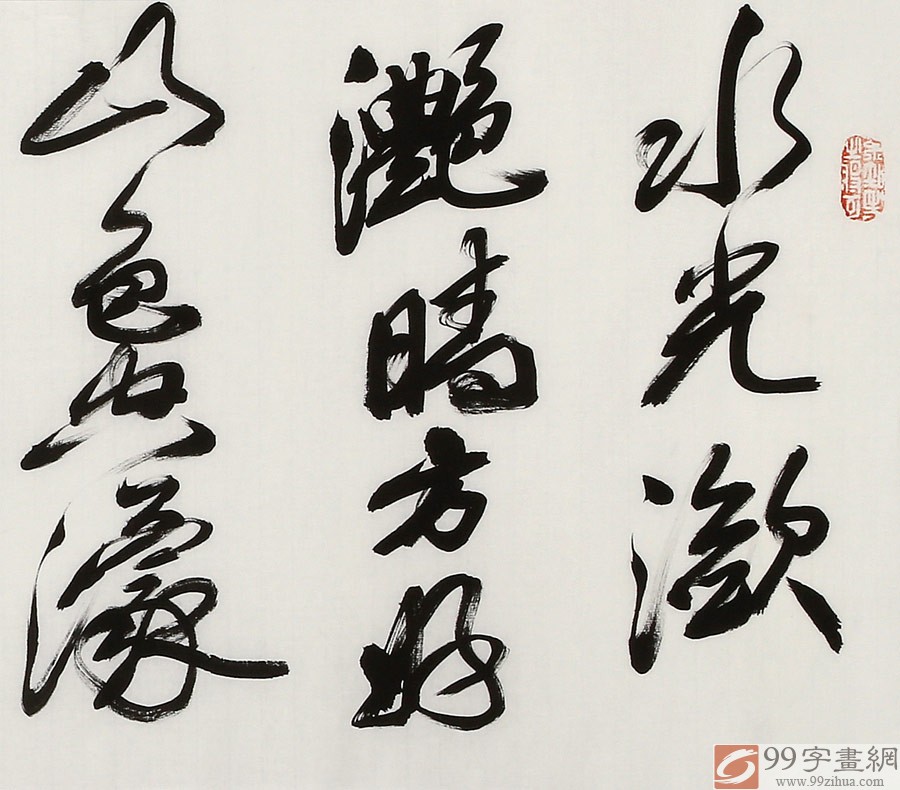 水光潋
灧晴方好
山色空濛
99字畫網
www.99zihua.com